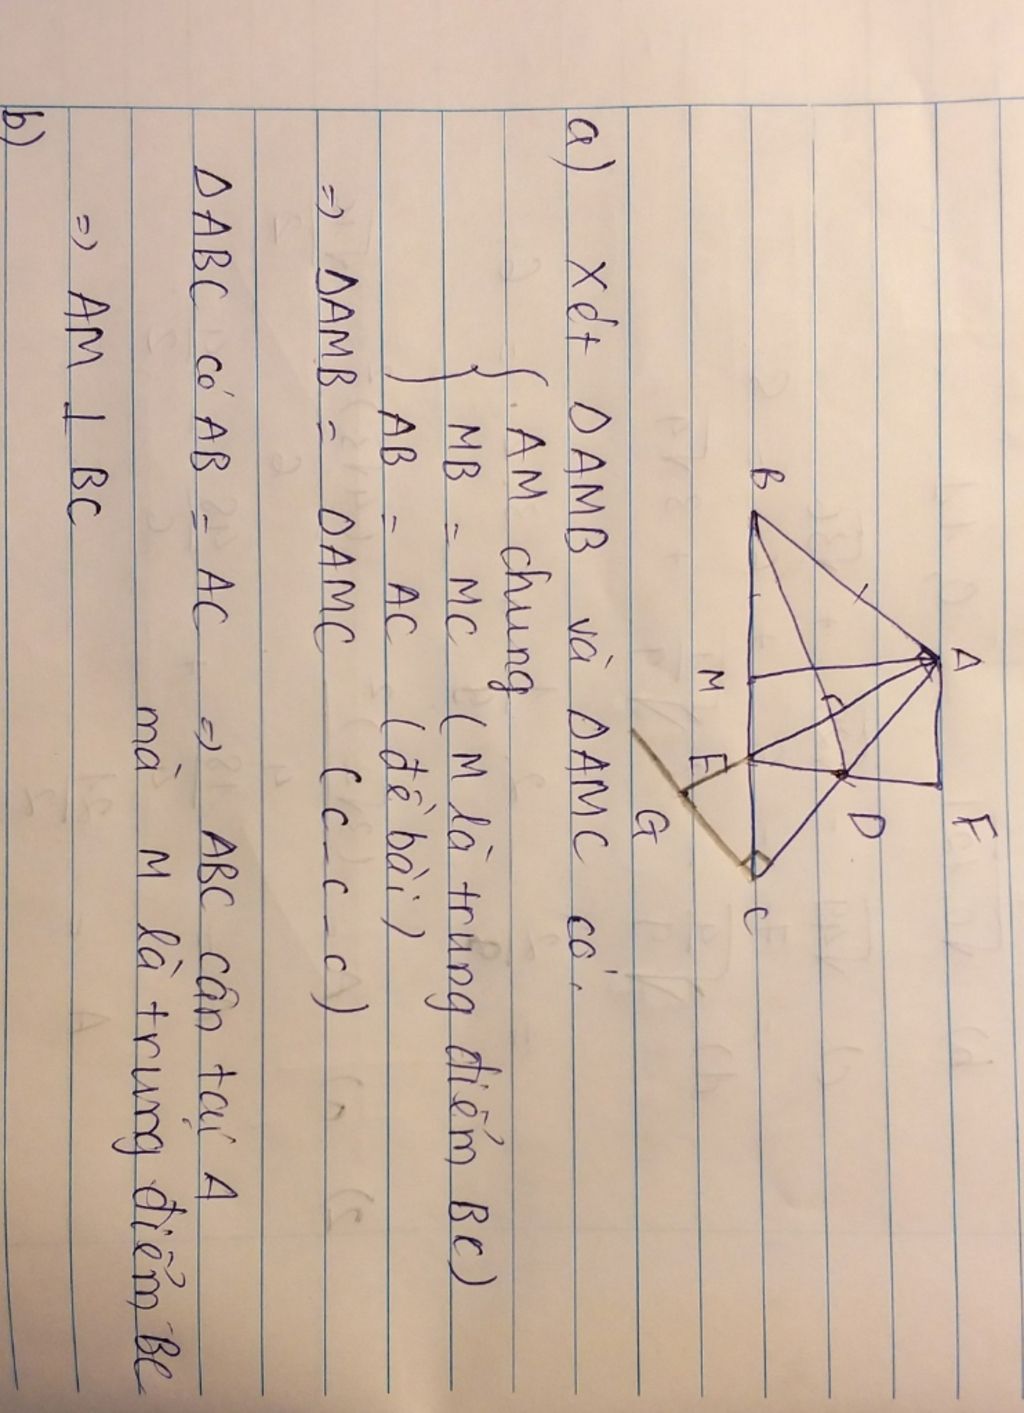 A
F
D
B
M
E
C
G
a) Xét ΔAMB và ΔAMC có.
AM chung
MB = MC (M là trung điểm BC)
AB = AC (đề bài)
=> ΔAMB = ΔAMC (c_c_c)
ΔABC có AB = AC => ABC cân tại A
mà M là trung điểm BC
=> AM ⊥ BC
b)